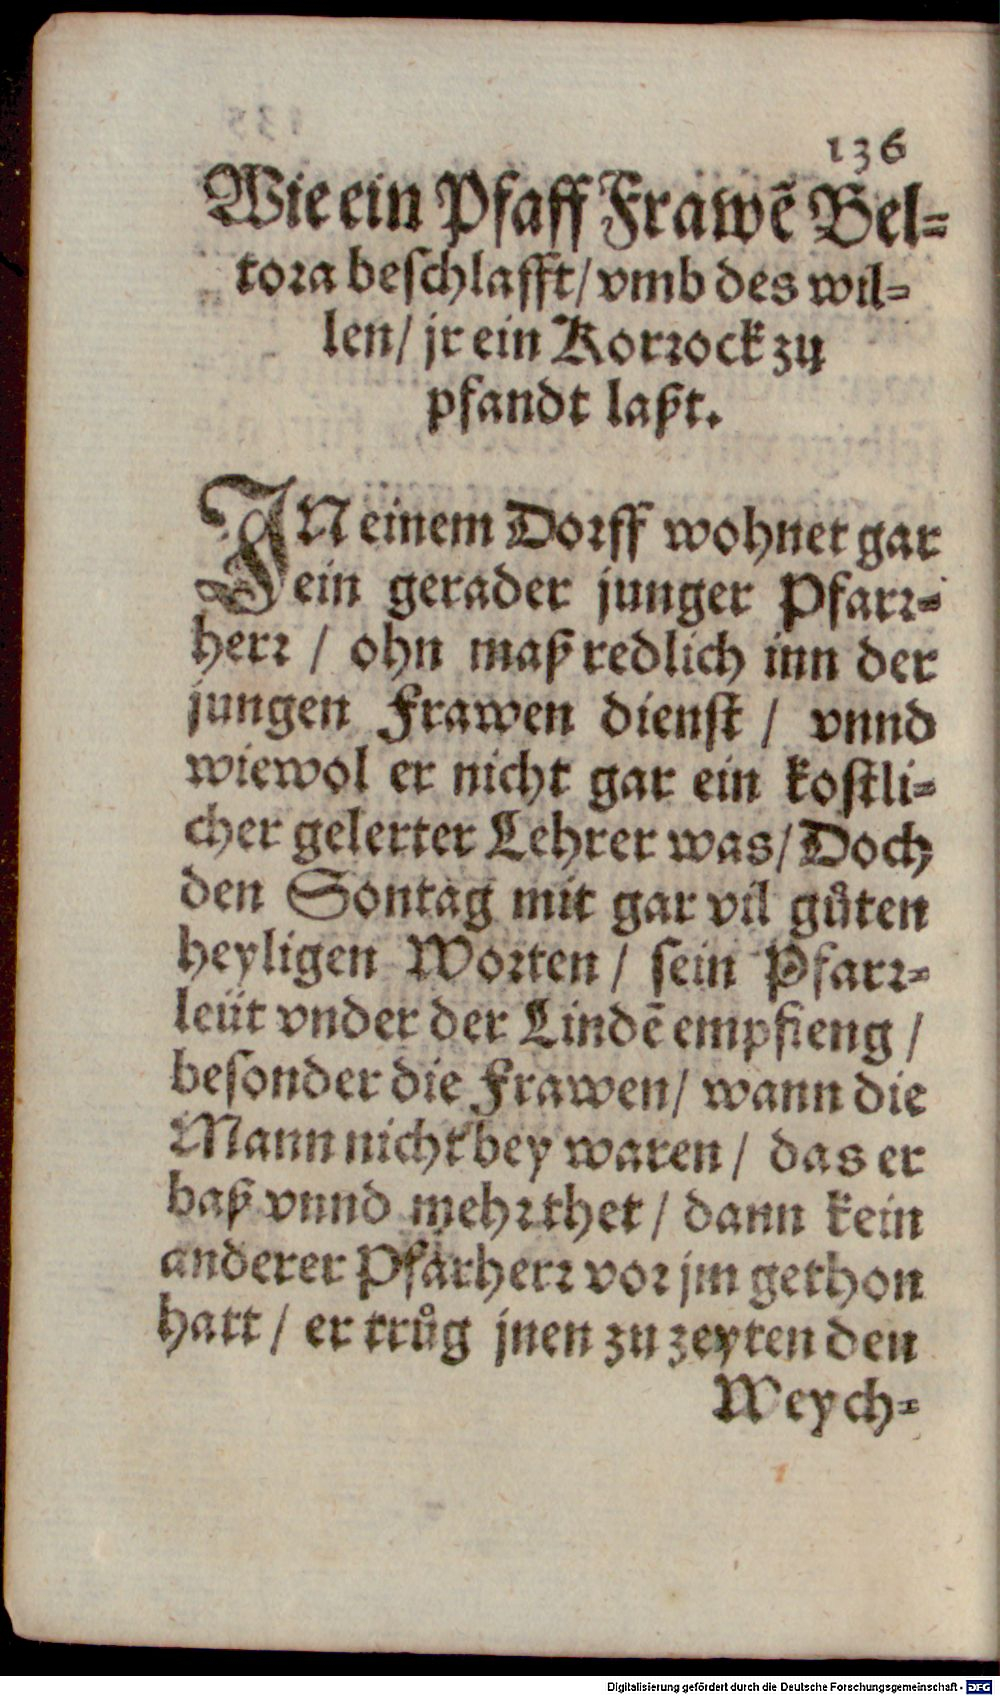 136
Wie ein Pfaff Frawẽ Bel=
tora beschlafft/ vmb des wil=
len/ jr ein Korrock zů
pfandt laßt.
IN einem Dorff wohnet gar
ein gerader junger Pfarr=
herr / ohn maß redlich inn der
jungen Frawen dienst / vnnd
wiewol er nicht gar ein kostli=
cher gelerter Lehrer was/ Doch
den Sontag mit gar vil gůten
heyligen Worten / sein Pfarr=
leüt vnder der Lindẽ empfieng /
besonder die Frawen/ wann die
Mann nicht bey waren / das er
baß vnnd mehr thet / dann kein
anderer Pfarherr vor jm gethon
hatt / er trůg jnen zu zeyten den
Weych=
Digitalisierung gefördert durch die Deutsche Forschungsgemeinschaft - DFG